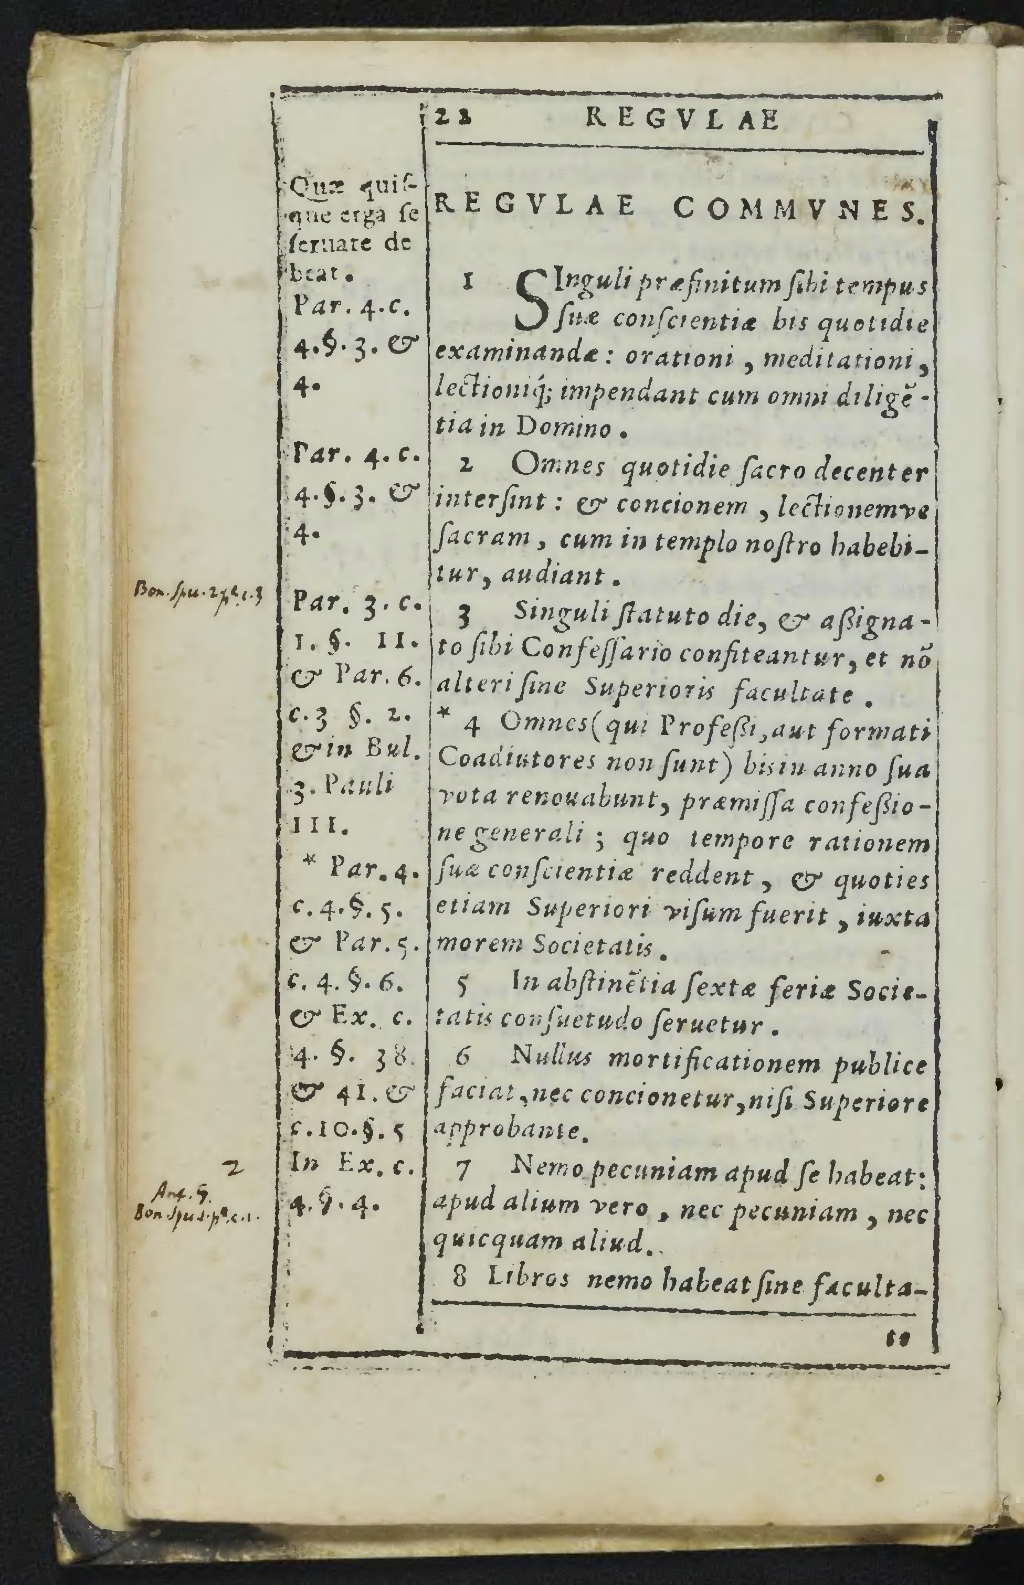 22 REGVLAE
Quæ quiſ-
que erga ſe
ſeruare de
beat.
Par. 4. c.
4. §. 3. &
4.
Par. 4. c.
4. §. 3. &
4.
Par. 3. c.
1. §. 11.
& Par. 6.
c. 3 §. 2.
& in Bul.
3. Pauli
III.
* Par. 4.
c. 4. §. 5.
& Par. 5.
c. 4. §. 6.
& Ex. c.
4. §. 38.
& 41. &
c. 10. §. 5
In Ex. c.
4. §. 4.
REGVLAE COMMVNES.
1 SInguli præfinitum ſibi tempus
ſuæ conſcientiæ bis quotidie
examinandæ: orationi, meditationi,
lectioniq́; impendant cum omni diligē-
tia in Domino.
2 Omnes quotidie ſacro decenter
interſint: & concionem, lectionemve
ſacram, cum in templo noſtro habebi-
tur, audiant.
3 Singuli ſtatuto die, & aßigna-
to ſibi Confeſſario confiteantur, et nō
alteri ſine Superioris facultate.
* 4 Omnes (qui Profeßi, aut formati
Coadiutores non ſunt) bis in anno ſua
vota renouabunt, præmiſſa confeßio-
ne generali; quo tempore rationem
ſuæ conſcientiæ reddent, & quoties
etiam Superiori viſum fuerit, iuxta
morem Societatis.
5 In abſtinētia ſextæ feriæ Socie-
tatis conſuetudo ſeruetur.
6 Nullus mortificationem publice
faciat, nec concionetur, niſi Superiore
approbante.
7 Nemo pecuniam apud ſe habeat:
apud alium vero, nec pecuniam, nec
quicquam aliud.
8 Libros nemo habeat ſine faculta-
te
2